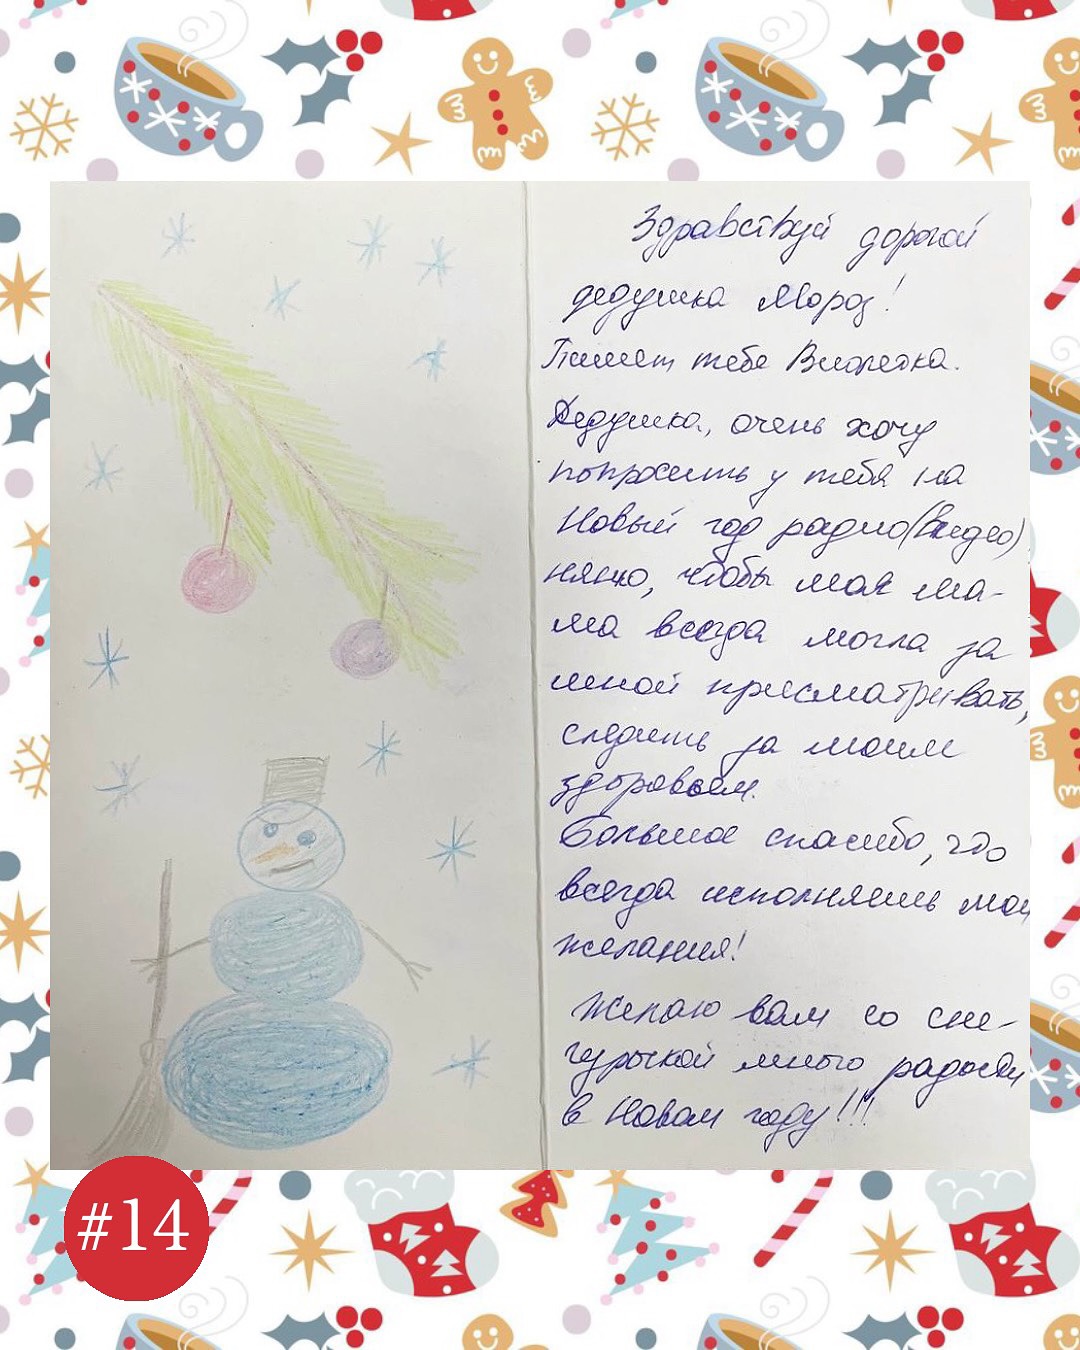 Здравствуй дорогой
дедушка Мороз!
Пишет тебе Виолетка.
Дедушка, очень хочу
попросить у тебя на
Новый год радио(видео)
няню, чтобы моя ма-
ма всегда могла за
мной присматривать,
следить за моим
здоровьем.
Большое спасибо, что
всегда исполняешь мои
желания!
Желаю вам со сне-
гурочкой много радости
в Новом году!!!
#14